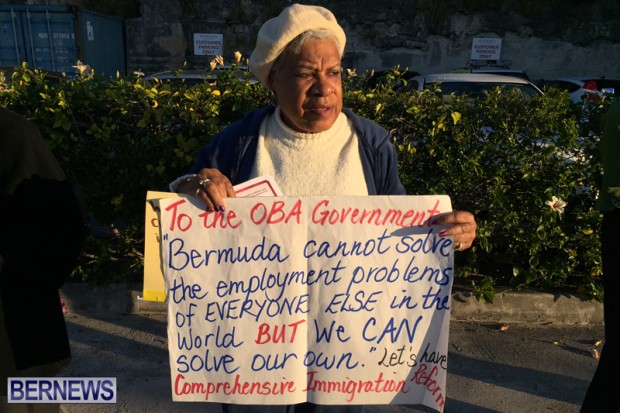 CUSTOMER
PARKING
ONLY
CUSTOMER
PARKING
ONLY
To the OBA Government
"Bermuda cannot solve
the employment problems
of EVERYONE ELSE in the
World BUT WE CAN
solve our own." Let's have
Comprehensive Immigration Reform
BERNEWS